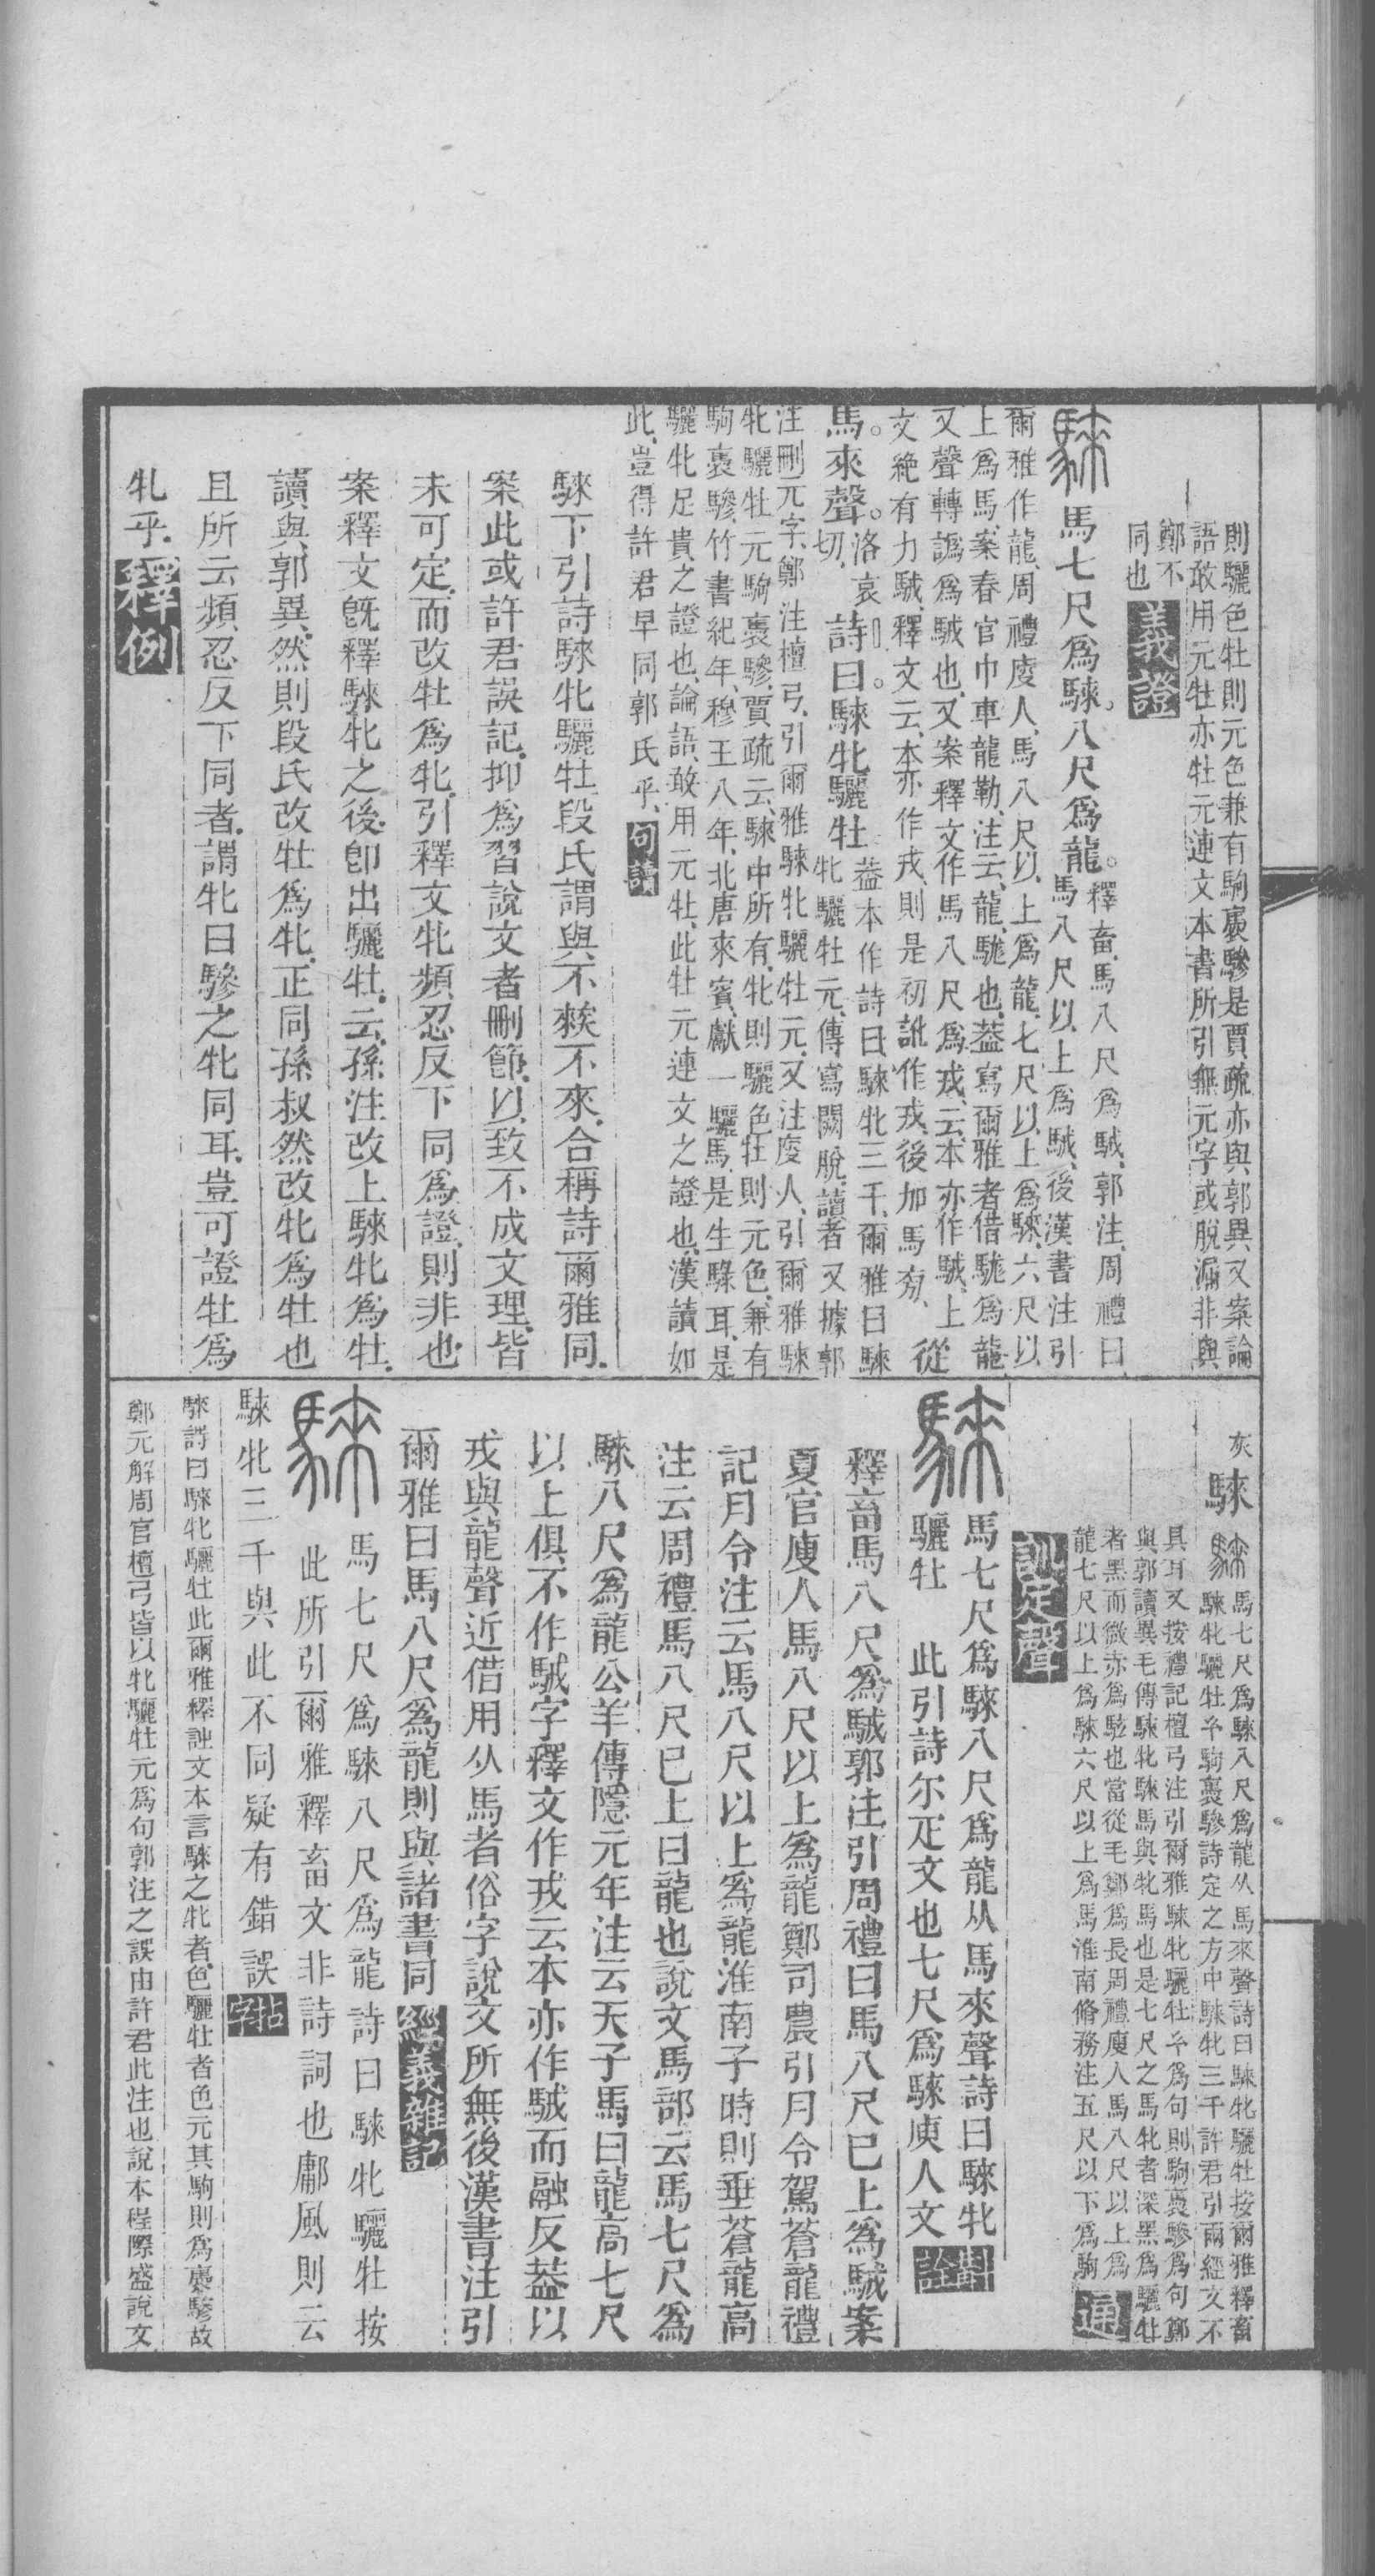 則驪色牡則元色兼有駒褭驂是賈疏亦與郭異又案論
語敢用元牡亦牡元連文本書所引無元字或脫漏非與
鄭不
同也
義證
馬七尺爲騋。八尺爲龍。
釋畜、馬八尺爲駥、郭注、周禮曰
馬八尺以上爲駥、後漢書注引
爾雅作龍、周禮廋人、馬八尺以上爲龍、七尺以上爲騋、六尺以
上爲馬、案春官巾車龍勒、注云、龍、駹也、葢寫爾雅者借駹爲龍
又聲轉譌爲駥也、又案釋文作馬八尺爲戎、云、本亦作駥、上
文絶有力駥、釋文云、本亦作戎、則是初訛作戎、後加馬㫄、
從
馬。來聲。
洛哀
切、
詩曰。騋牝驪牡
葢本作詩曰騋牝三千、爾雅曰騋
牝驪牡元、傳寫闕脫、讀者又據郭
注刪元字、鄭注檀弓、引爾雅騋牝驪牡元、又注廋人、引爾雅騋
牝驪牡元駒褭驂、賈疏云、騋中所有、牝則驪色牡則元色、兼有
駒褭驂、竹書紀年、穆王八年、北唐來賓、獻一驪馬、是生騄耳、是
驪牝足貴之證也、論語、敢用元牡、此牡元連文之證也、漢讀如
此、豈得許君早同郭氏乎、
句讀
騋下引詩騋牝驪牡、段氏謂與不䅘不來、合稱詩爾雅同、
案此或許君誤記、抑爲習說文者刪節、以致不成文理、皆
未可定、而改牡爲牝、引釋文牝頻忍反下同爲證、則非也、
案釋文旣釋騋牝之後、卽出驪牡、云、孫注改上騋牝爲牡、
讀與郭異、然則段氏改牡爲牝、正同孫叔然改牝爲牡也
且所云頻忍反下同者、謂牝曰騇之牝同耳、豈可證牡爲
牝乎、
釋例
灰
騋
馬七尺爲騋八尺爲龍从馬來聲詩曰騋牝驪牡按爾雅釋畜
騋牝驪牡𤣥駒褭驂詩定之方中騋牝三千許君引爾經文不
具耳又按禮記檀弓注引爾雅騋牝驪牡𤣥爲句則駒褭驂爲句鄭
與郭讀異毛傳騋牝騋馬與牝馬也是七尺之馬牝者深黑爲驪牡
者黑而微赤爲駭也當從毛鄭爲長周禮廋人馬八尺以上爲
龍七尺以上爲騋六尺以上爲馬淮南脩務注五尺以下爲駒
通
訓定聲
馬七尺爲騋八尺爲龍从馬來聲詩曰騋牝
驪牡 此引詩尔疋文也七尺爲騋廋人文
斠
詮
釋畜馬八尺爲駥郭注引周禮曰馬八尺已上爲駥案
夏官廋人馬八尺以上爲龍鄭司農引月令駕蒼龍禮
記月令注云馬八尺以上爲龍淮南子時則垂蒼龍高
注云周禮馬八尺已上曰龍也說文馬部云馬七尺爲
騋八尺爲龍公羊傳隱元年注云天子馬曰龍高七尺
以上俱不作駥字釋文作戎云本亦作駥而融反葢以
戎與龍聲近借用从馬者俗字說文所無後漢書注引
爾雅曰馬八尺爲龍則與諸書同
經義雜記
馬七尺爲騋八尺爲龍詩曰騋牝驪牡按
此所引爾雅釋畜文非詩詞也鄘風則云
騋牝三千與此不同疑有錯誤
拈
字
騋詩曰騋牝驪牡此爾雅釋詩文本言騋之牝者色驪牡者色元其駒則爲褭驂故
鄭元解周官檀弓皆以牝驪牡元爲句郭注之誤由許君此注也說本程際盛說文